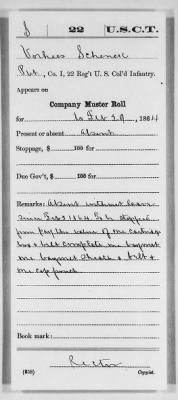 S 22 U.S.C.T.
Vorhees Schenck
Pvt., Co. I, 22 Reg't U. S. Col'd Infantry.
Appears on
Company Muster Roll
for to Feb 29, 1864
Present or absent Absent
Stoppage, $ 100 for
Due Gov't, $ 100 for
Remarks: Absent without leave
since Feb 21 1864. To be stopped
from pay the value of one cartridge
box & belt complete one bayonet
one bayonet sheath & belt &
one cap pouch
Book mark:
Rector
(858) Copyist.